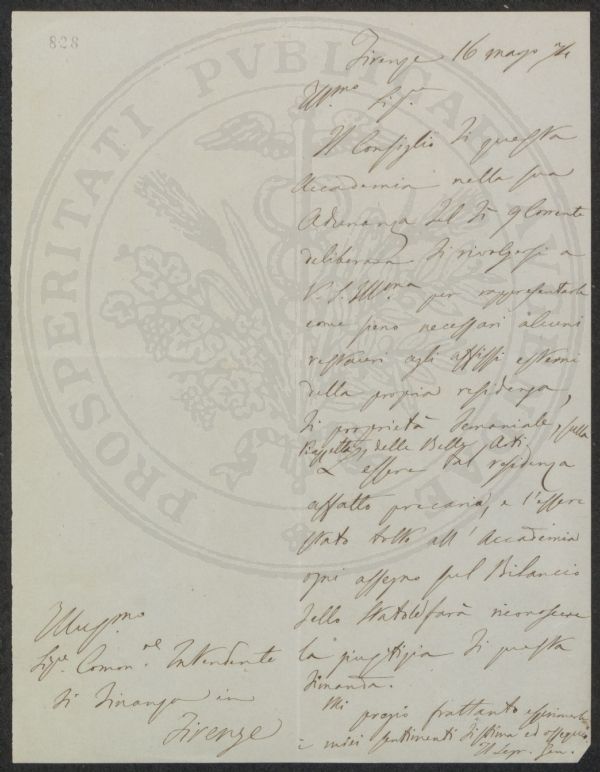 828
Firenze 16 maggo 74
Ill.mo Sig.
Il Consiglio di questa
Accademia nella sua
Adunanza del dì 9 Corrente
deliberava di rivolgersi a
V. S. Ill.ma per rappresentarle
come sieno necessari alcuni
restauri agli affissi esterni
della propria residenza,
di proprietà demaniale, sulla
Piazzetta delle Belle Arti.
L'essere tal residenza
affatto precaria, e l'essere
stato tolto all'Accademia
ogni assegno sul Bilancio
dello Stato farà riconoscere
la giustizia di questa
dimanda.
Mi pregio frattanto esprimerle
i miei sentimenti di stima ed ossequio
Il Segr. Gen.
Illus.mo
Sig.re Comm.re Intendente
di Finanza in
Firenze
PROSPERITATI PVBLICAE AVGENDAE